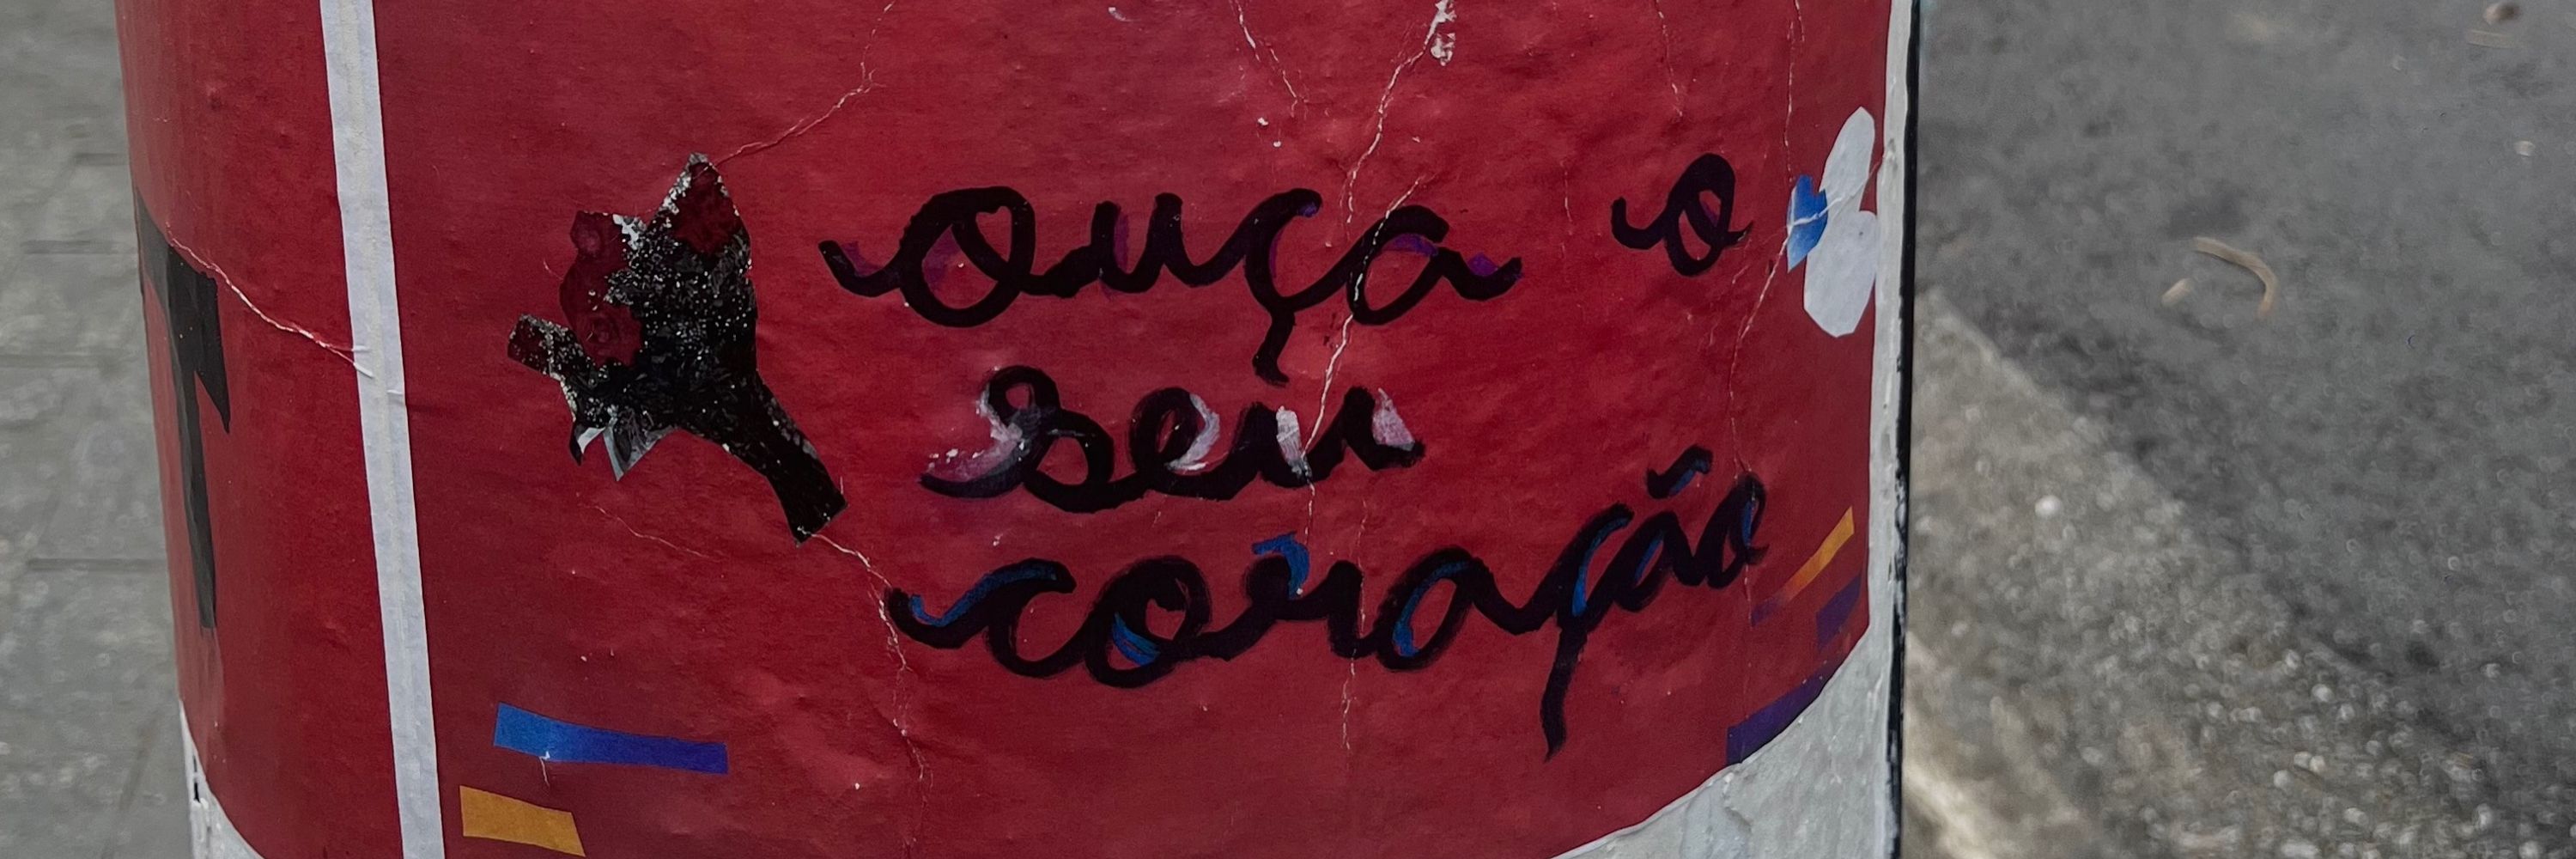 ouça o
seu
coração